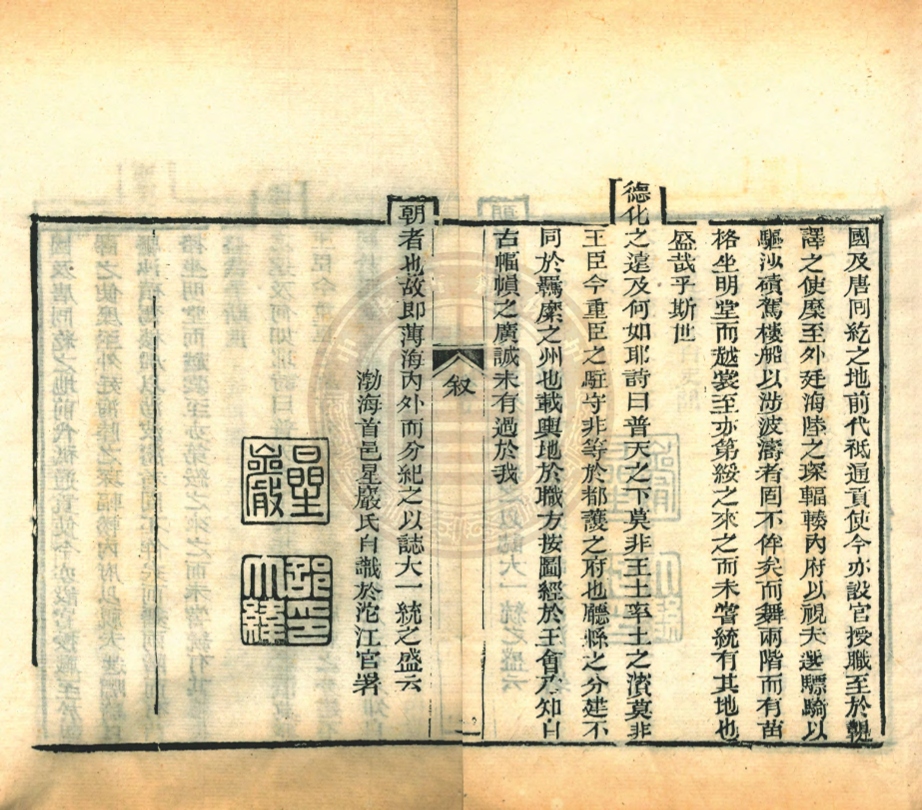 國及唐同紇之地前代祗通貢使今亦設官授職至於鞮
譯之使麇至外廷海陸之琛輻輳內府以視夫選驃騎以
驅沙磧駕樓船以涉波濤者固不侔矣而舞兩階而有苗
格坐明堂而越裳至亦第綏之來之而未嘗統有其地也
盛哉乎斯世
德化之遠及何如耶詩曰普天之下莫非王土率土之濱莫非
王臣今重臣之駐守非等於都護之府也廳縣之分建不
同於羈縻之州也載輿地於職方按圖經於王會乃知自
古幅幀之廣誠未有過於我
叙
一
朝者也故即薄海內外而分紀之以誌大一統之盛云
渤海首邑星巖氏自識於沱江官署
星巖